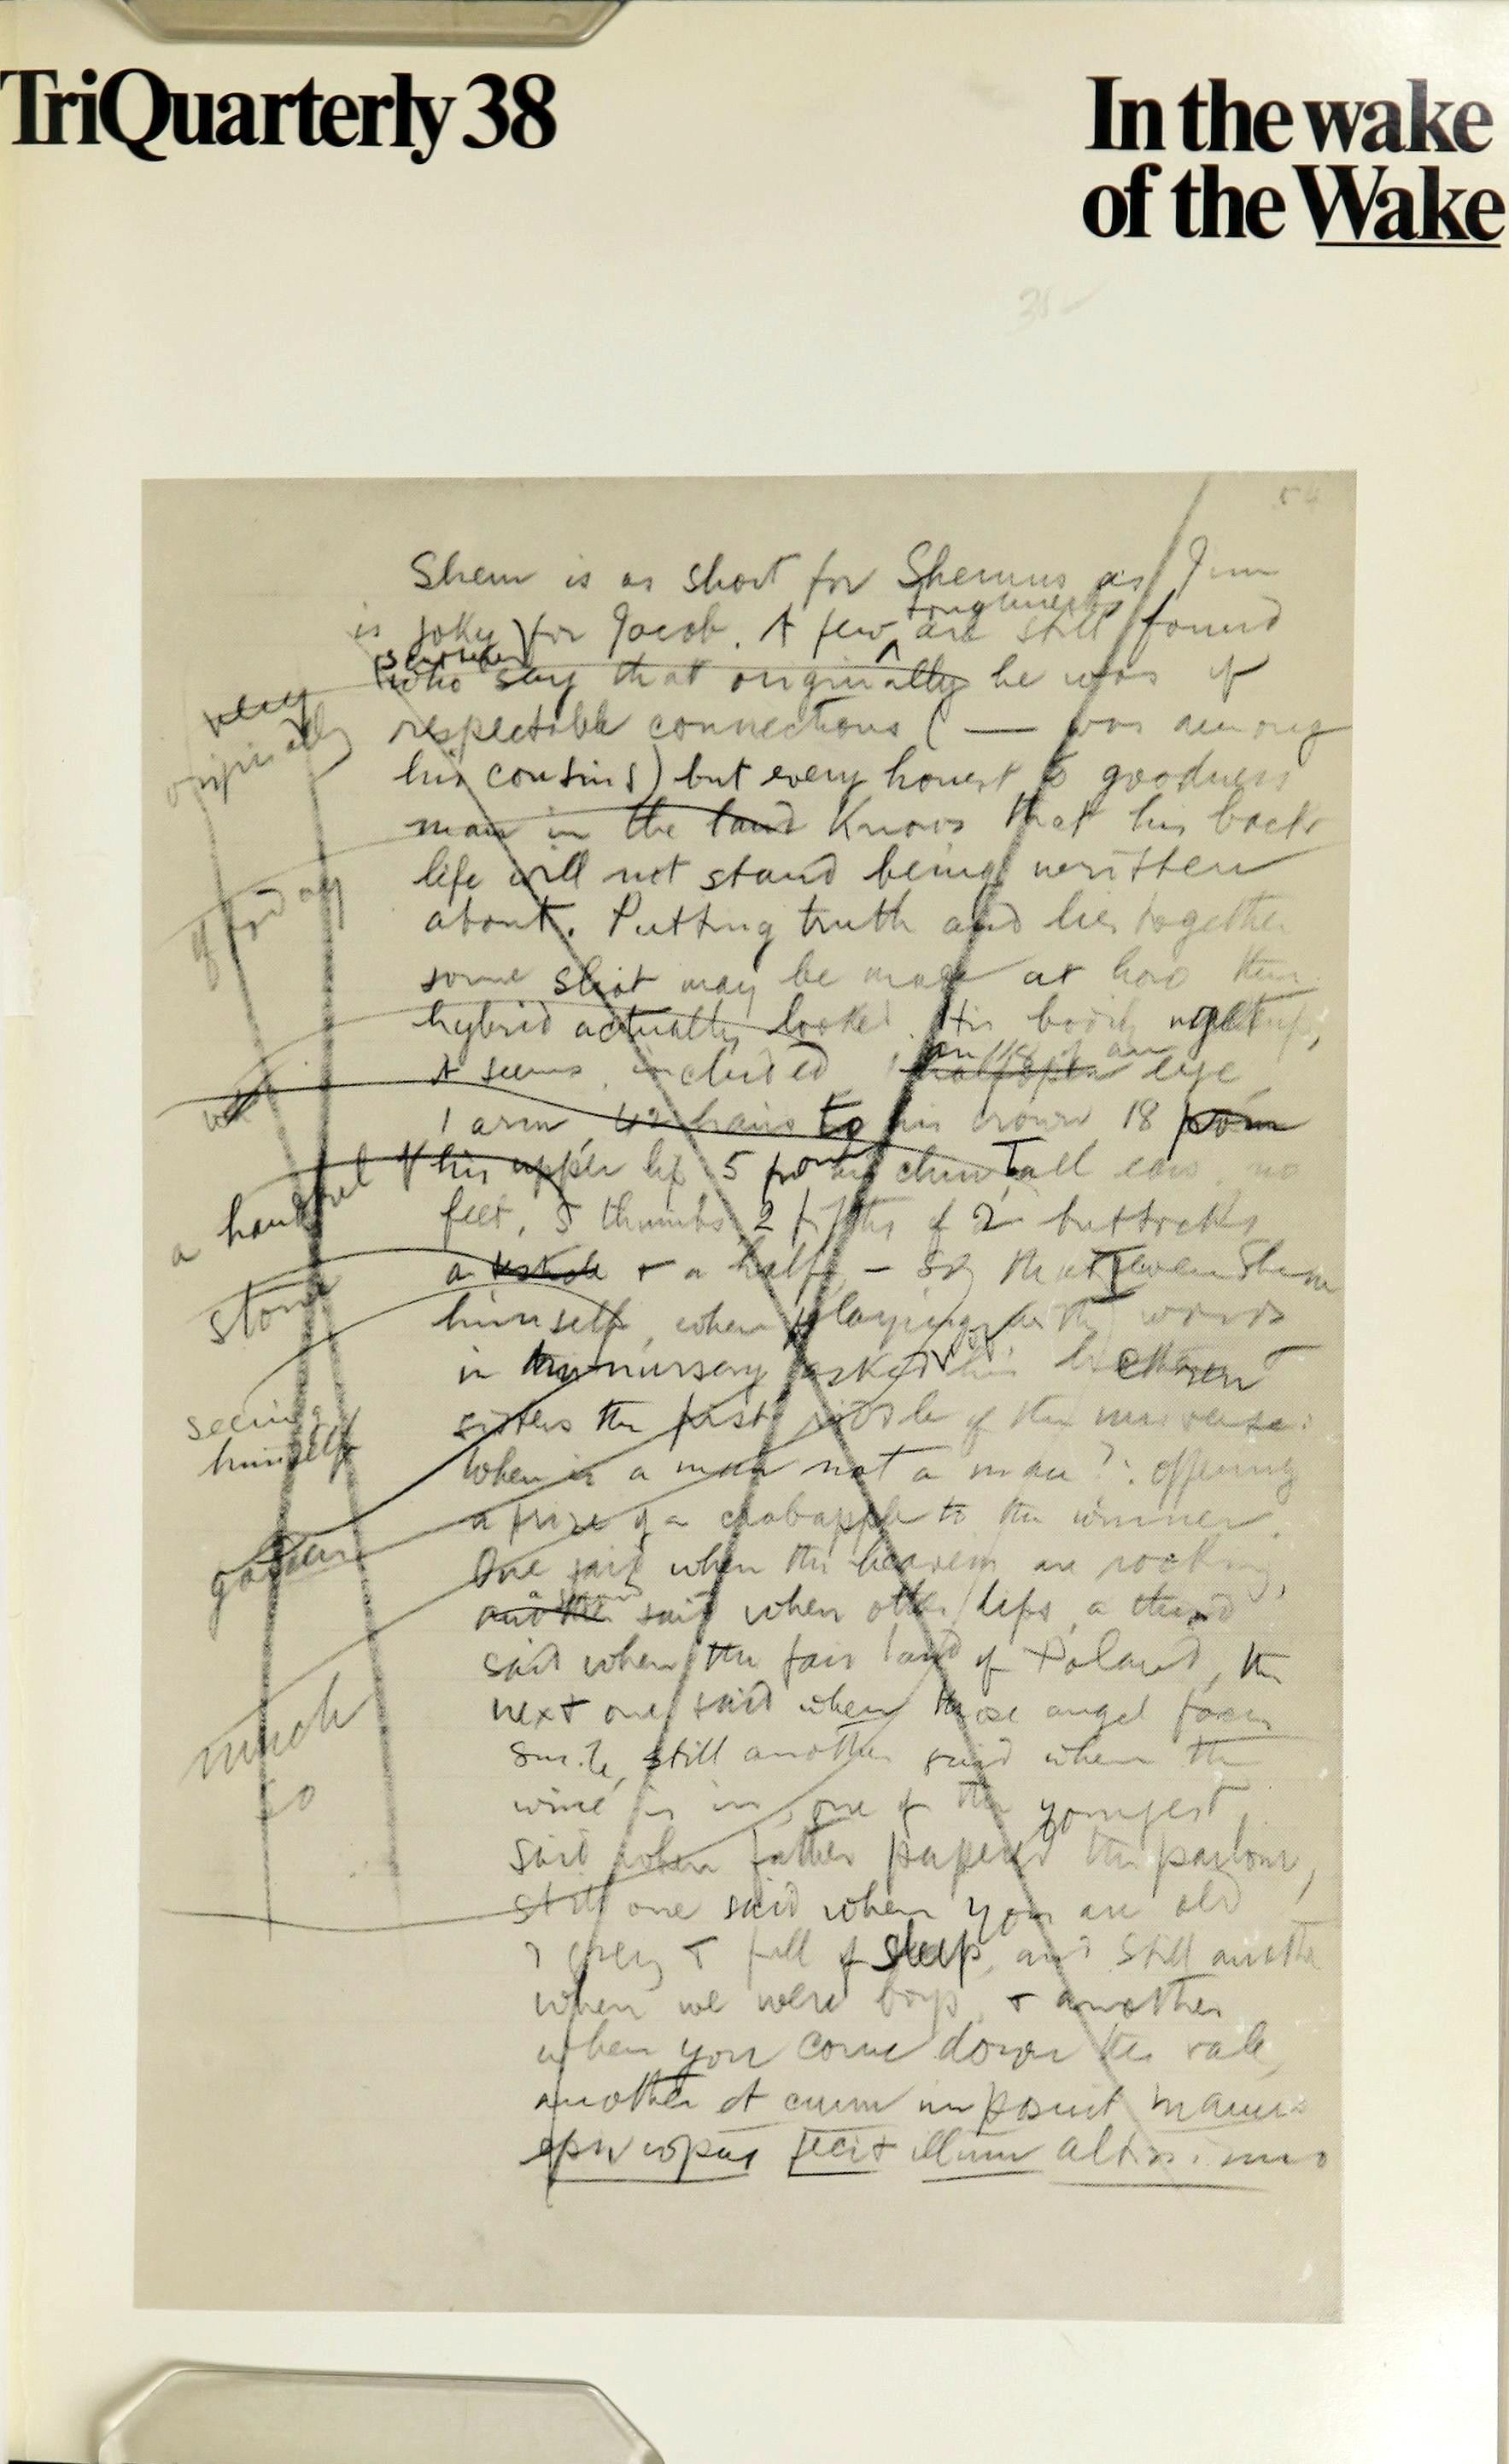 TriQuarterly 38
In the wake
of the Wake
54
Shem is as short for Shemus as Jim
is joky for Jacob. A few toughnecks are still found
who say that originally he was of
originally
respectable connections ( — was among
his cousins) but every honest to goodness
man in the land knows that his back
life will not stand being written
of today
about. Putting truth and lies together
some shot may be made at how this
hybrid actually looked. His bodily getup,
it seems, included an 1/8 of an eye
1 arm, 42 hairs to his crown 18
his upper lip 5 chin, all ears, no
a handful of
feet, 5 thumbs, 2 fifths of 2 buttocks
a + a half, – so that even Shem
stone
himself, when playing with words
in nursery asked his brethren +
seeing
himself
sisters the first riddle of the universe:
When is a man not a man?: offering
a prize of a crabapple to the winner.
garden
One said when the heavens are rocking,
a second
another said when other lips, a third
said when the fair land of Poland, the
next one said when those angel faces
much
so
smile, still another said when the
wine is in, one of the youngest
said when father papered the parlour,
still one said when you are old
& grey + full of sleep, and still another
when we were boys, + another
when you come down the vale
another et cum imposuit manus
episcopus fecit illum altissimo